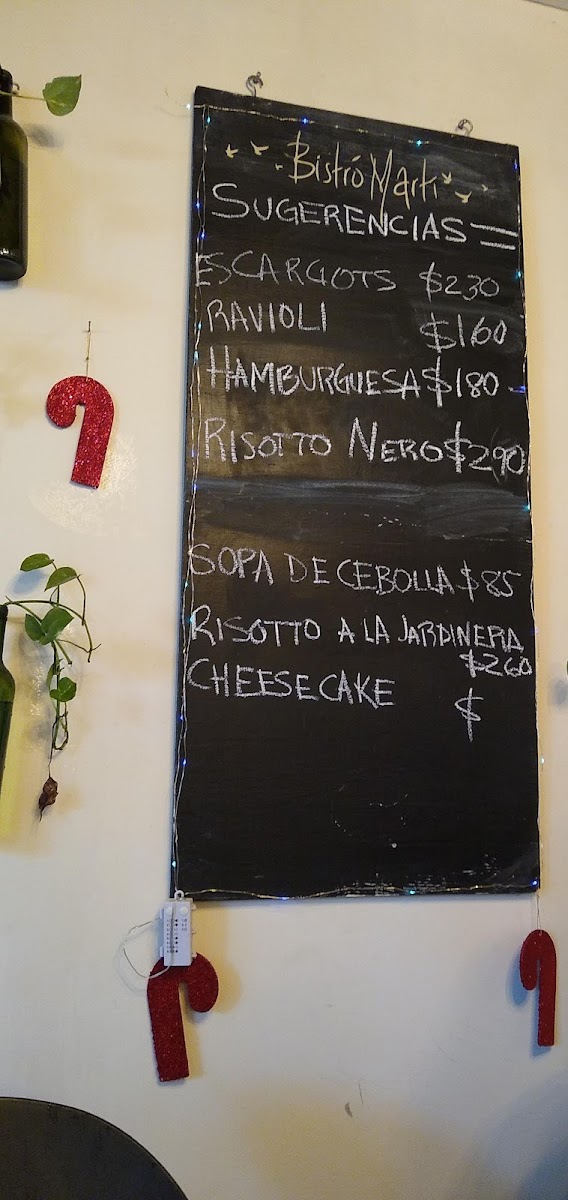 Bistró Marti
SUGERENCIAS
ESCARGOTS $230
RAVIOLI $160
HAMBURGUESA $180
RISOTTO NERO $290
SOPA DE CEBOLLA $85
RISOTTO A LA JARDINERA
$260
CHEESECAKE $